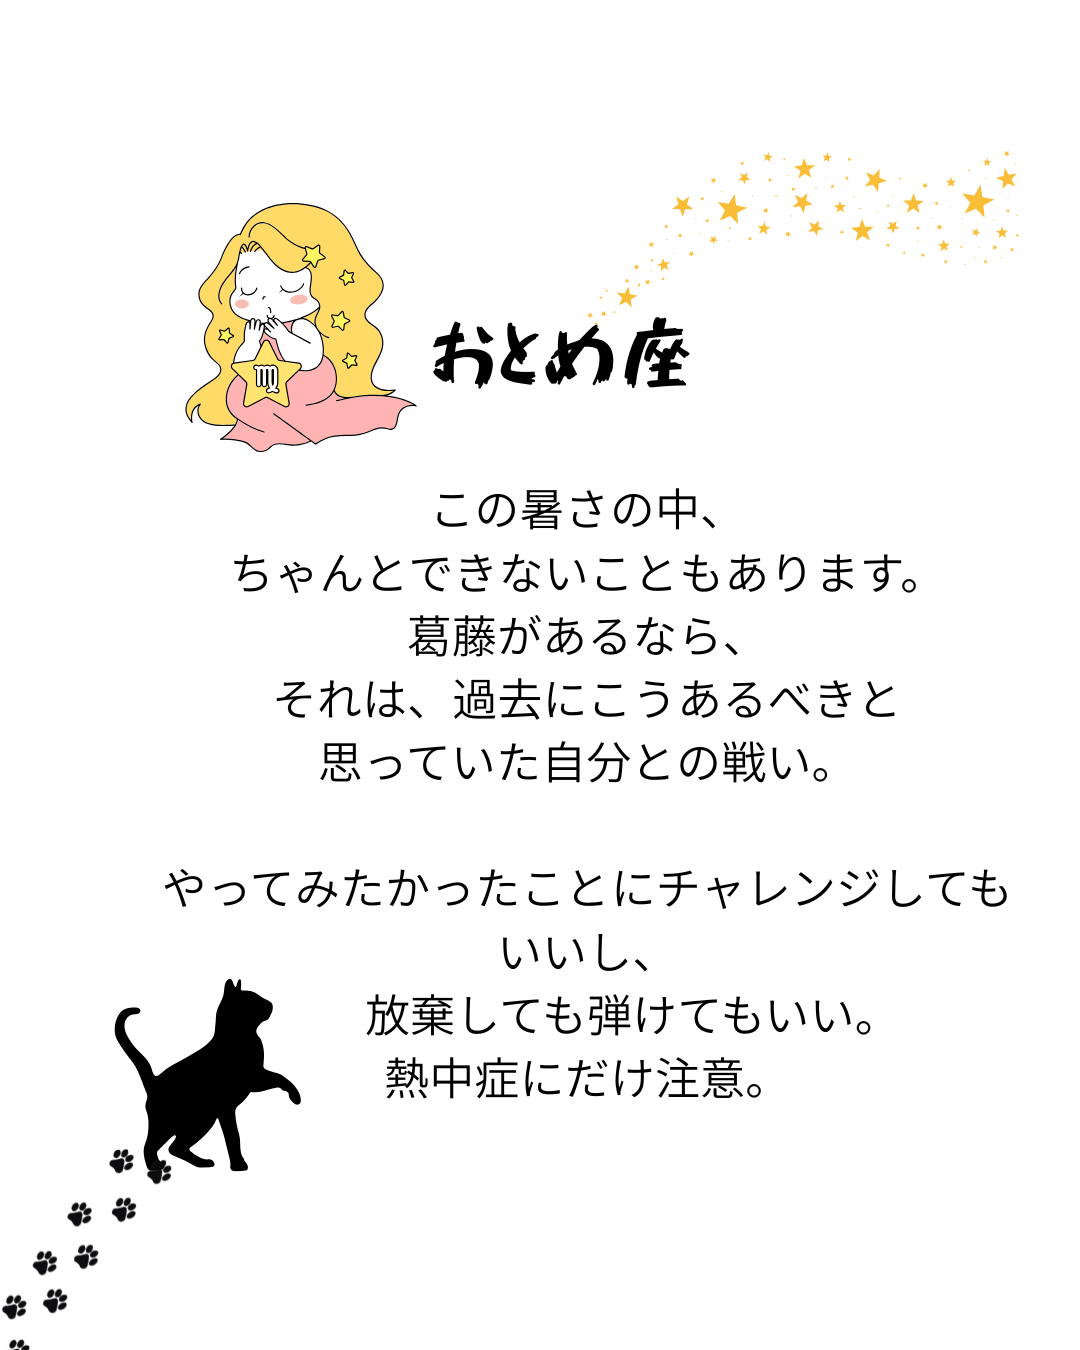 おとめ座
この暑さの中、
ちゃんとできないこともあります。
葛藤があるなら、
それは、過去にこうあるべきと
思っていた自分との戦い。
やってみたかったことにチャレンジしても
いいし、
放棄しても弾けてもいい。
熱中症にだけ注意。